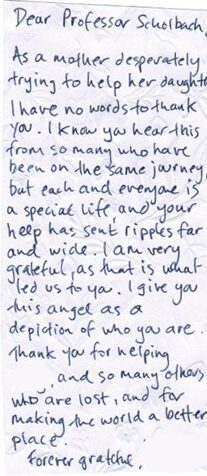 Dear Professor Scholbach,
As a mother desperately
trying to help her daughte
I have no words to thank
you. I know you hear this
from so many who have
been on the same journey
but each and everyone is
a special life, and your
help has sent ripples far
and wide. I am very
grateful, as that is what
led us to you. I give you
this angel as a
depiction of who you are.
Thank you for helping
, and so many others
who are lost, and for
making the world a better
place.
Forever grateful,